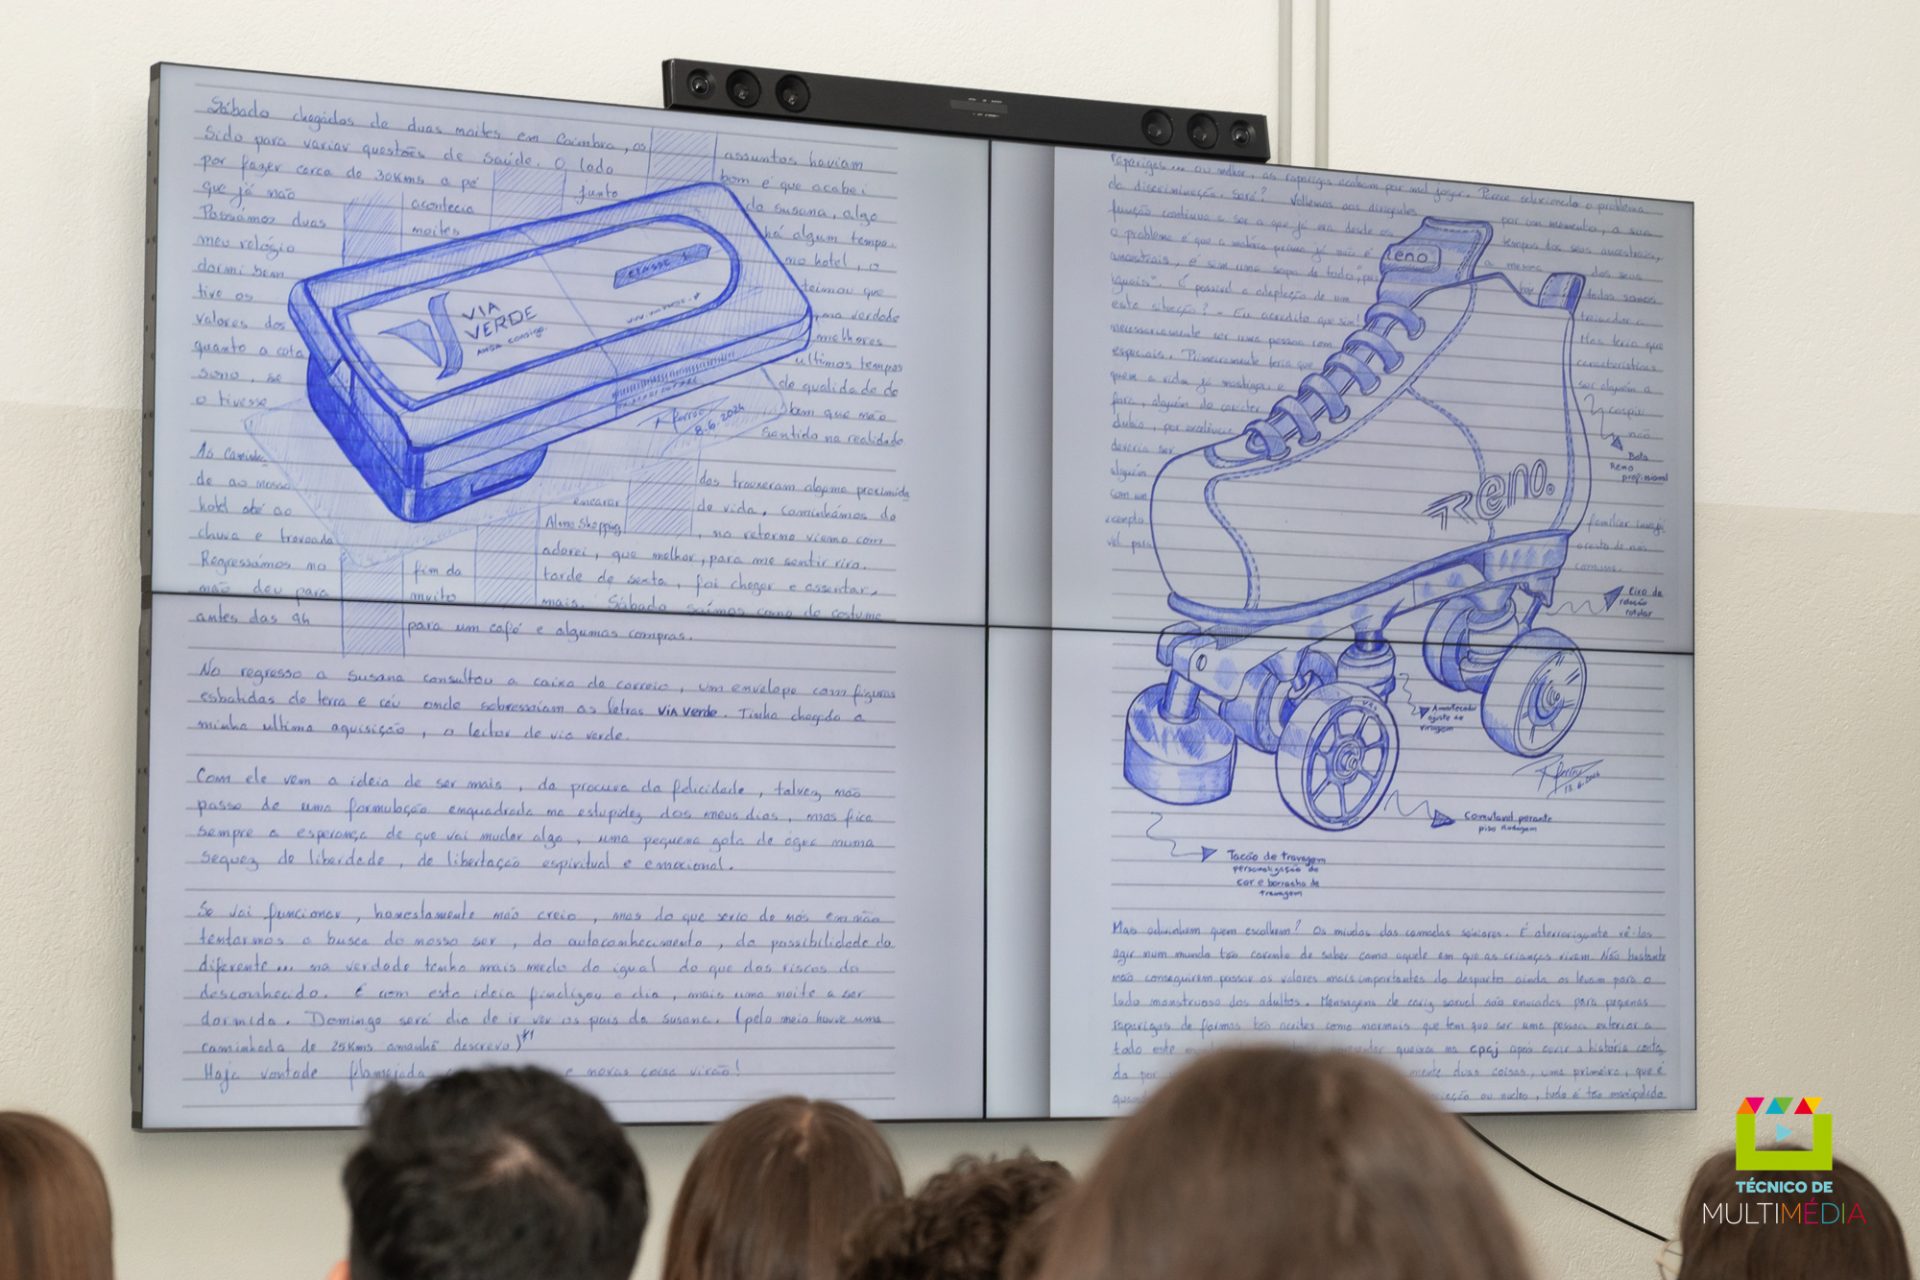 Sábado chegados de duas noites em Coimbra, os assuntos haviam
sido para variar questões de saúde. O lado bom é que acabei
por fazer cerca de 30Kms a pé junto da Susana, algo
que já não acontecia há algum tempo.
Passámos duas noites no hotel, o
meu relógio teimou que
dormi bem na verdade
tive os melhores
valores dos ultimos tempos
quanto a cota de qualidade de
sono, se bem que não
o tivesse sentido na realidade
VIA
VERDE
ANDA CONSIGO.
CLASSE 1
8.6.2024
As caminha
das trouxeram alguma proximida
de ao nosso encarar de vida, caminhámos do
hotel até ao Alma Shopping, no retorno viemos com
chuva e trovoada adorei, que melhor, para me sentir vivo.
Regressámos no fim da tarde de sexta, foi chegar e assentar,
não deu para muito mais. Sábado saímos como de costume
antes das 9h para um café e algumas compras.
No regresso a Susana consultou a caixa do correio, um envelope com figuras
esbatidas de terra e céu onde sobressaiam as letras VIA VERDE. Tinha chegado a
minha ultima aquisição, o leitor de via verde.
Com ele vem a ideia de ser mais, da procura da felicidade, talvez não
passe de uma formulação enquadrada na estupidez dos meus dias, mas fica
sempre a esperança de que vai mudar algo, uma pequena gota de água numa
sequez de liberdade, de libertação espiritual e emocional.
Se vai funcionar, honestamente não creio, mas do que seria de nós em não
tentarmos a busca do nosso ser, do autoconhecimento, da possibilidade do
diferente... na verdade tenho mais medo do igual do que dos riscos do
desconhecido. É com esta ideia finalizou o dia, mais uma noite a ser
dormida. Domingo será dia de ir ver os pais da Susana. (pelo meio houve uma
caminhada de 25Kms amanhã descrevo)
Haja vontade e novas coisas virão!
raparigas ... ou melhor, as raparigas acabam por mal jogar. Parece solucionado o problema
da discriminação, será? Voltemos aos dirigentes por um momento, a sua
função continua a ser a que já era desde os tempos dos seus ancestrais,
o problema é que a matéria prima já não é a mesma dos seus
ancestrais, é sim uma sopa de todo "por
iguais". É possível a adaptação de um
este situação? - Eu acredito que sim!
necessariamente ser uma pessoa com características
especiais. Primeiramente teria que ser alguém a
quem a vida já mastigou e cuspiu
fora, alguém de caracter não
dubio, por excelência
deveria ser
alguém
com um
exemplo familiar
vel para
comuns.
Reno
Reno.
Bota
Reno
profissional
Eixo de
rotação
Amortecedor
ajuste de
viragem
13.6.2024
Tacão de travagem
personalização de
cor e borracha de
travagem
Mas adivinhem quem escolhem? Os miudos das camadas seniores. É aterrorizante vê-los
agir num mundo tão carente de saber como aquele em que as crianças vivem. Não bastante
não conseguirem passar os valores mais importantes do desporto ainda os levam para o
lado monstruoso dos adultos. Mensagens de cariz sexual são enviadas para pequenas
raparigas de formas tão aceites como normais que tem que ser uma pessoa exterior a
todo este apresentar queixa na cpcj após ouvir a história contada
da por mente duas coisas, uma primeira, que é
ou nucleo, tudo é tão manipulado
TÉCNICO DE
MULTIMÉDIA